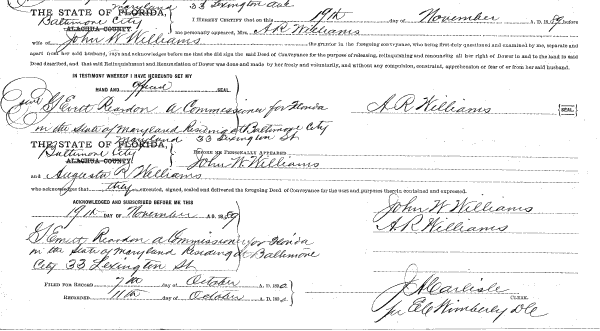 33 Lexington Ave.
THE STATE OF FLORIDA, Maryland
Baltimore City
ALACHUA COUNTY.
I HEREBY CERTIFY that on this 19th day of November A. D. 1889 before
me personally appeared, Mrs. A R Williams
wife of John W. Williams the grantor in the foregoing conveyance, who being first duly questioned and examined by me, separate and
apart from her said husband, says and acknowledges before me that she did sign the said Deed of Conveyance for the purpose of releasing, relinquishing and renouncing all her right of Dower in and to the land in said
Deed described, and that said Relinquishment and Renunciation of Dower was done and made by her freely and voluntarily, and without any compulsion, constraint, apprehension or fear of or from her said husband.
IN TESTIMONY WHEREOF I HAVE HEREUNTO SET MY
HAND AND Official SEAL.
A Commissioner for Florida
A R Williams
SEAL
in the State of Maryland Residing at Baltimore City
33 Lexington St
THE STATE OF FLORIDA, Maryland
Baltimore City
ALACHUA COUNTY.
BEFORE ME PERSONALLY APPEARED
John W Williams
and Augusta R Williams
who acknowledge that they executed, signed, sealed and delivered the foregoing Deed of Conveyance for the uses and purposes therein contained and expressed.
ACKNOWLEDGED AND SUBSCRIBED BEFORE ME THIS
19th DAY OF November A. D. 1889
John W Williams
A R Williams
Reardon a Commissioner for Florida
in the State of Maryland Residing at Baltimore
City 33 Lexington St
FILED FOR RECORD 7th day of October A. D. 1890
RECORDED 11th day of October A. D. 1890
J A Carlisle
CLERK.
per E C Wimberly DC